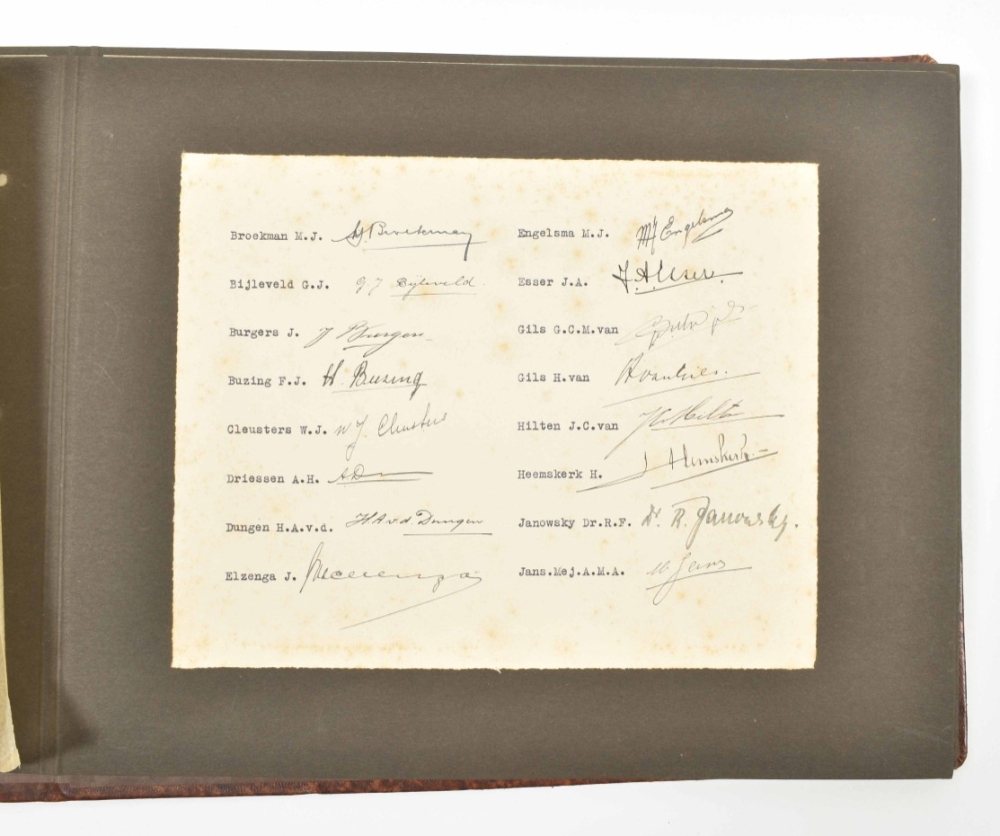 Broekman M.J. M.J. Broekman
Bijleveld G.J. G J Bijleveld
Burgers J. J Burgers
Buzing F.J. H. Buzing
Cleusters W.J. W J. Cleusters
Driessen A.H. A.D
Dungen H.A.v.d. H A v d. Dungen
Elzenga J. Elzenga
Engelsma M.J. MJ Engelsma
Esser J.A. J. A. Esser.
Gils G.C.M.van
Gils H.van H van Gils.
Hilten J.C.van Hilten
Heemskerk H. Heemskerk
Janowsky Dr.R.F. Dr. R. Janowsky.
Jans.Mej.A.M.A. Jans